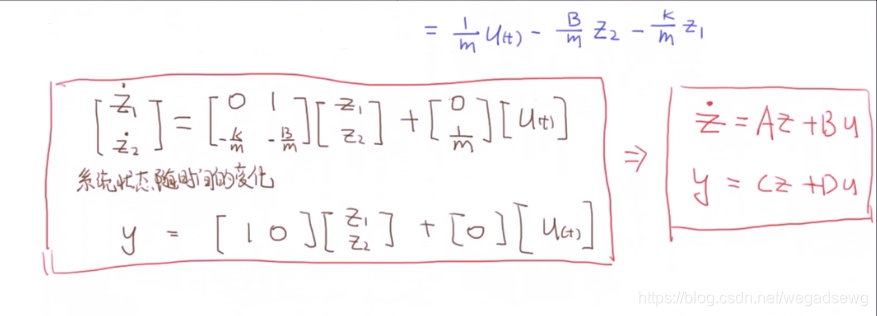 = 1/m u(t) - B/m z₂ - k/m z₁
[ż₁ ż₂] = [0 1 -k/m -B/m][z₁ z₂] + [0 1/m][u(t)]
⇒
ż = Az + Bu
系统状态随时间的变化
y = [1 0][z₁ z₂] + [0][u(t)]
y = Cz + Du
https://blog.csdn.net/wegadsewg